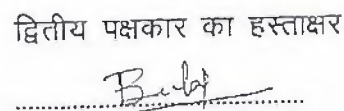 द्वितीय पक्षकार का हस्ताक्षर